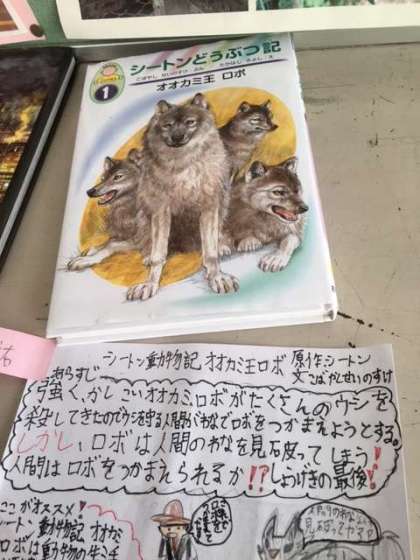 シートンどうぶつ記
こばやし せいのすけ ぶん たかはし きよし え
オオカミ王 ロボ
1
シートン動物記 オオカミ王ロボ 原作シートン
文こばやしせいのすけ
あらすじ
強く、かしこいオオカミ、ロボがたくさんのウシを
殺してきたのでウシを守る人間がわなでロボをつかまえようとする。
しかし、ロボは人間のわなを見破ってしまう！
人間はロボをつかまえられるか!?しょうげきの最後！
ここがオススメ！
シートン動物記 オオカミ
ロボは
動物の生き